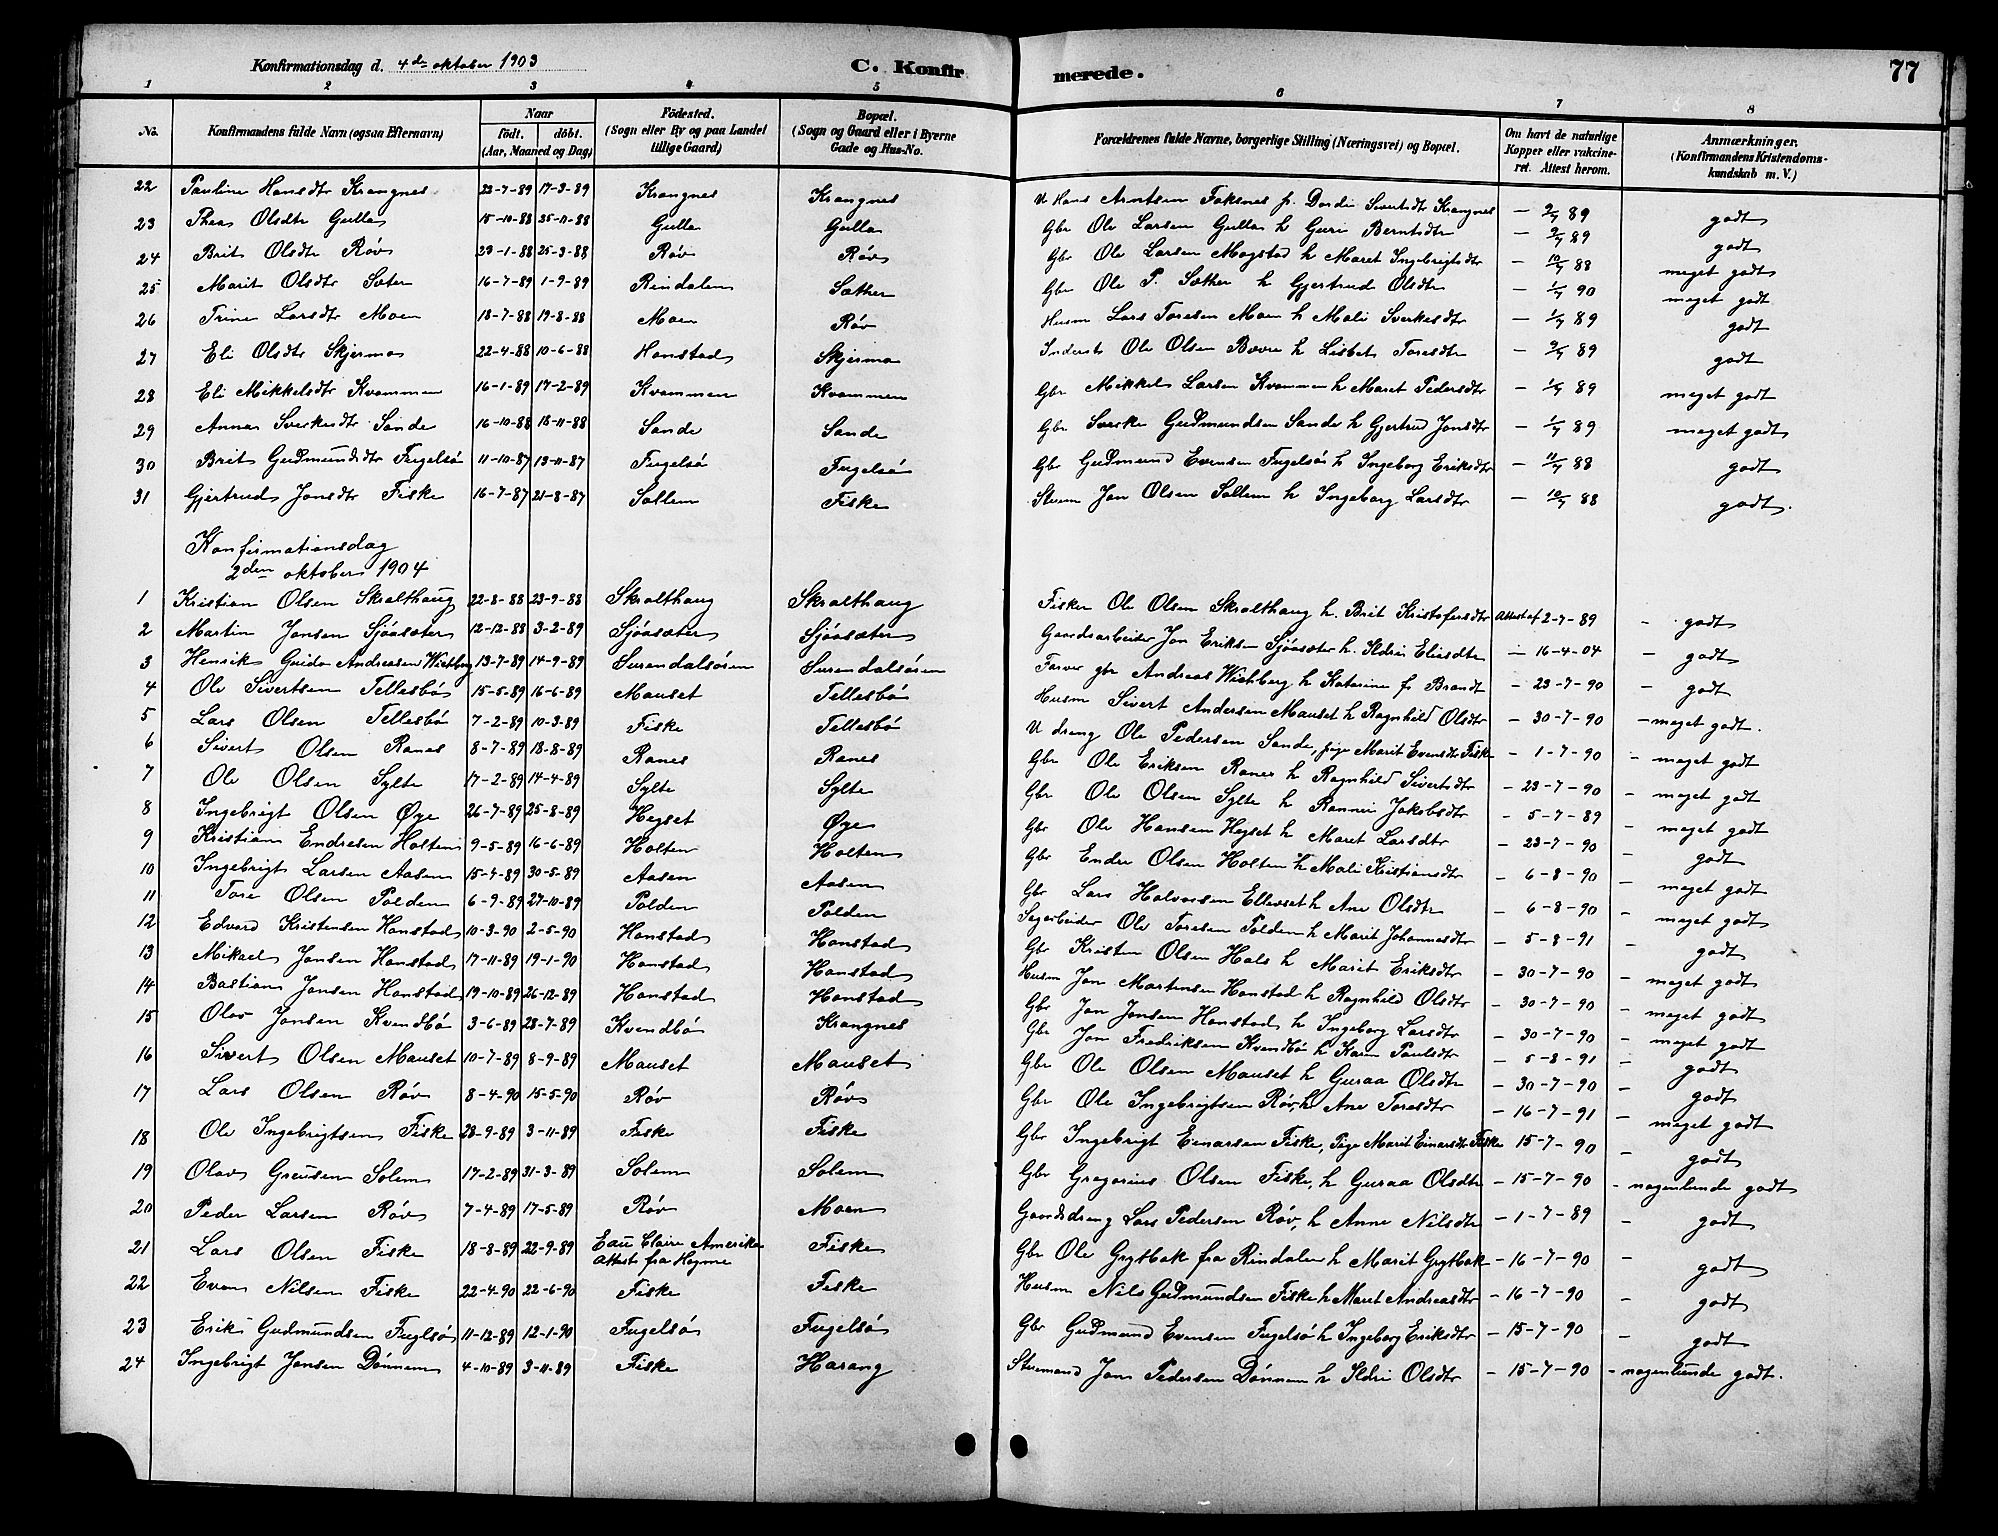 Konfirmationsdag d. 4de oktober 1903 C. Konfirmerede. 77
1 2 3 4 5 6 7 8
No. Konfirmandens fulde Navn (ogsaa Efternavn) Naar født. døbt. (Aar, Maaned og Dag) Fødested. (Sogn eller By og paa Landet tillige Gaard) Bopæl. (Sogn og Gaard eller i Byerne Gade og Hus-No. Forældrenes fulde Navne, borgerlige Stilling (Næringsvei) og Bopæl. Om havt de naturlige Kopper eller vakcineret. Attest herom. Anmærkninger. (Konfirmandens Kristendomskundskab m. V.)
22 Pauline Hansdtr Krangnes 23-7-89 17-3-89 Krangnes Krangnes U Hans Arntsen Foksnes p. Dordi Sivertsdt Krangnes - 2/7 89 godt
23 Thea Olsdtr Gulla 15-10-88 25-11-88 Gulla Gulla Gbr Ole Larsen Gulla h Guri Berntsdtr - 2/7 89 godt
24 Brit Olsdtr Røv 23-1-88 25-3-88 Røv Røv Gbr Ole Larsen Mogstad h Maret Ingebrigtsdtr - 10/7 88 meget godt
25 Marit Olsdtr Sæter 16-7-89 1-9-89 Rindalen Sæther Gbr Ole P. Sæther h Gjertrud Olsdtr - 1/7 90 meget godt
26 Trine Larsdtr Moen 18-7-88 19-8-88 Moen Røv Husm Lars Toresen Moen h Mali Sverkesdtr - 1/7 89 godt
27 Eli Olsdtr Skjermo 22-4-88 10-6-88 Honstad Skjermo Inderst Ole Olsen Bævre h Lisbet Toresdtr - 2/7 89 godt
28 Eli Mikkelsdtr Kvammen 16-1-89 17-2-89 Kvammen Kvammen Gbr Mikkel Larsen Kvammen h Maret Pedersdtr - 1/7 89 meget godt
29 Anna Sverkesdtr Sande 16-10-88 18-11-88 Sande Sande Gbr Sverke Gudmundsen Sande h Gjertrud Jonsdtr - 1/7 89 meget godt
30 Brit Gudmundsdtr Fugelsø 11-10-87 13-11-87 Fugelsø Fugelsø Gbr Gudmund Evensen Fugelsø h Ingeborg Eriksdtr - 11/7 88 godt
31 Gjertrud Jonsdtr Fiske 16-7-87 21-8-87 Sollem Fiske Jon Olsen Sollem h Ingeborg Larsdtr - 10/7 88 godt.
Konfirmationsdag
2den oktober 1904
1 Kristian Olsen Skralthaug 22-8-88 23-9-88 Skralthaug Skralthaug Fisker Ole Olsen Skralthaug h. Brit Kristofersdtr Attest af 2-7-89 - godt
2 Martin Jonsen Sjøasæter 12-12-88 3-2-89 Sjøasæter Sjøasæter Gaardsarbeider Jon Eriksen Sjøasæter h. Ildri Eliasdtr - 16-4-04 - godt
3 Henrik Guido Andreasen Wichberg 13-7-89 14-9-89 Surendalsøren Surendalsøren Farver gbr Andreas Wichberg h Katarine f. Brandt - 23-7-90 - godt
4 Ole Sivertsen Tellesbø 15-5-89 16-6-89 Mauset Tellesbø Husm Sivert Andersen Mauset h Ragnhild Olsdtr - 30-7-90 - meget godt.
5 Lars Olsen Tellesbø 7-2-89 10-3-89 Fiske Tellesbø U dreng Ole Pedersen Sande, pige Marit Evensdtr Fiske - 1-7-90 - meget godt
6 Sivert Olsen Ranes 8-7-89 18-8-89 Ranes Ranes Gbr Ole Eriksen Ranes h Ragnhild Sivertsdtr - 23-7-90 - meget godt
7 Ole Olsen Sylte 17-2-89 14-4-89 Sylte Sylte Gbr Ole Olsen Sylte h Rannei Jakobsdtr - 5-7-89 meget godt
8 Ingebrigt Olsen Øye 26-7-89 25-8-89 Hegset Øye Gbr Ole Hansen Hegset h Maret Larsdtr - 23-7-90 - godt
9 Kristian Endresen Holten 9-5-89 16-6-89 Holten Holten Gbr Endre Olsen Holten h Mali Kristiansdtr - 6-8-90 - meget godt
10 Ingebrigt Larsen Aasen 15-4-89 30-5-89 Aasen Aasen Gbr Lars Halvorsen Ellevset h Ane Olsdtr - 6-8-90 - meget godt
11 Tore Olsen Polden 6-9-89 27-10-89 Polden Polden Sagarbeider Ole Toresen Polden h Marit Johannesdtr - 5-8-91 - godt
12 Edvard Kristensen Honstad 10-3-90 2-5-90 Honstad Honstad Gbr Kristen Olsen Hals h Marit Eriksdtr - 30-7-90 - meget godt
13 Mikael Jonsen Honstad 17-11-89 19-1-90 Honstad Honstad Husm Jon Martensen Honstad h Ragnhild Olsdtr - 30-7-90 - meget godt
14 Bastian Jonsen Honstad 19-10-89 26-12-89 Honstad Honstad Gbr Jon Jonsen Honstad h Ingeborg Larsdtr - 30-7-90 - meget godt
15 Olav Jonsen Kvendbø 3-6-89 28-7-89 Kvendbø Krangnes Gbr Jon Fredriksen Kvendbø h Karen Paulsdtr - 5-8-91 - godt
16 Sivert Olsen Mauset 10-7-89 8-9-89 Mauset Mauset Gbr Ole Olsen Mauset h Guraa Olsdtr - 30-7-90 - godt
17 Lars Olsen Røv 8-4-90 15-5-90 Røv Røv Gbr Ole Ingebrigtsen Røv, h Ane Toresdtr - 16-7-91 - meget godt
18 Ole Ingebrigtsen Fiske 28-9-89 3-11-89 Fiske Fiske Gbr Ingebrigt Einarsen Fiske, Pige Marit Einarsdtr Fiske 15-7-90 - godt
19 Olav Greusen Solem 17-2-89 31-3-89 Solem Solem Gbr Gregorius Olsen Fiske, h Guraa Olsdtr - 15-7-90 - nogenlunde godt
20 Peder Larsen Røv 7-4-89 17-5-89 Røv Moen Gaardsdreng Lars Pedersen Røv, h Anne Nilsdtr - 1-7-89 - godt
21 Lars Olsen Fiske 18-8-89 22-9-89 Eau Claire Amerika Fiske Gbr Ole Grytbak fra Rindalen h Marit Grytbak - 16-7-90 - godt
Attest fra Hogne
22 Even Nilsen Fiske 22-4-90 22-6-90 Fiske Fiske Husm Nils Gudmundsen Fiske h Maret Andreasdtr - 16-7-90 - godt
23 Erik Gudmundsen Fuglsø 11-12-89 12-1-90 Fugelsø Fugelsø Gbr Gudmund Evensen Fugelsø h Ingeborg Eriksdtr - 15-7-90 - godt
24 Ingebrigt Jonsen Dønnem 4-10-89 3-11-89 Fiske Harang Stuemand Jon Pedersen Dønnem h Ildri Olsdtr - 15-7-90 - nogenlunde godt.